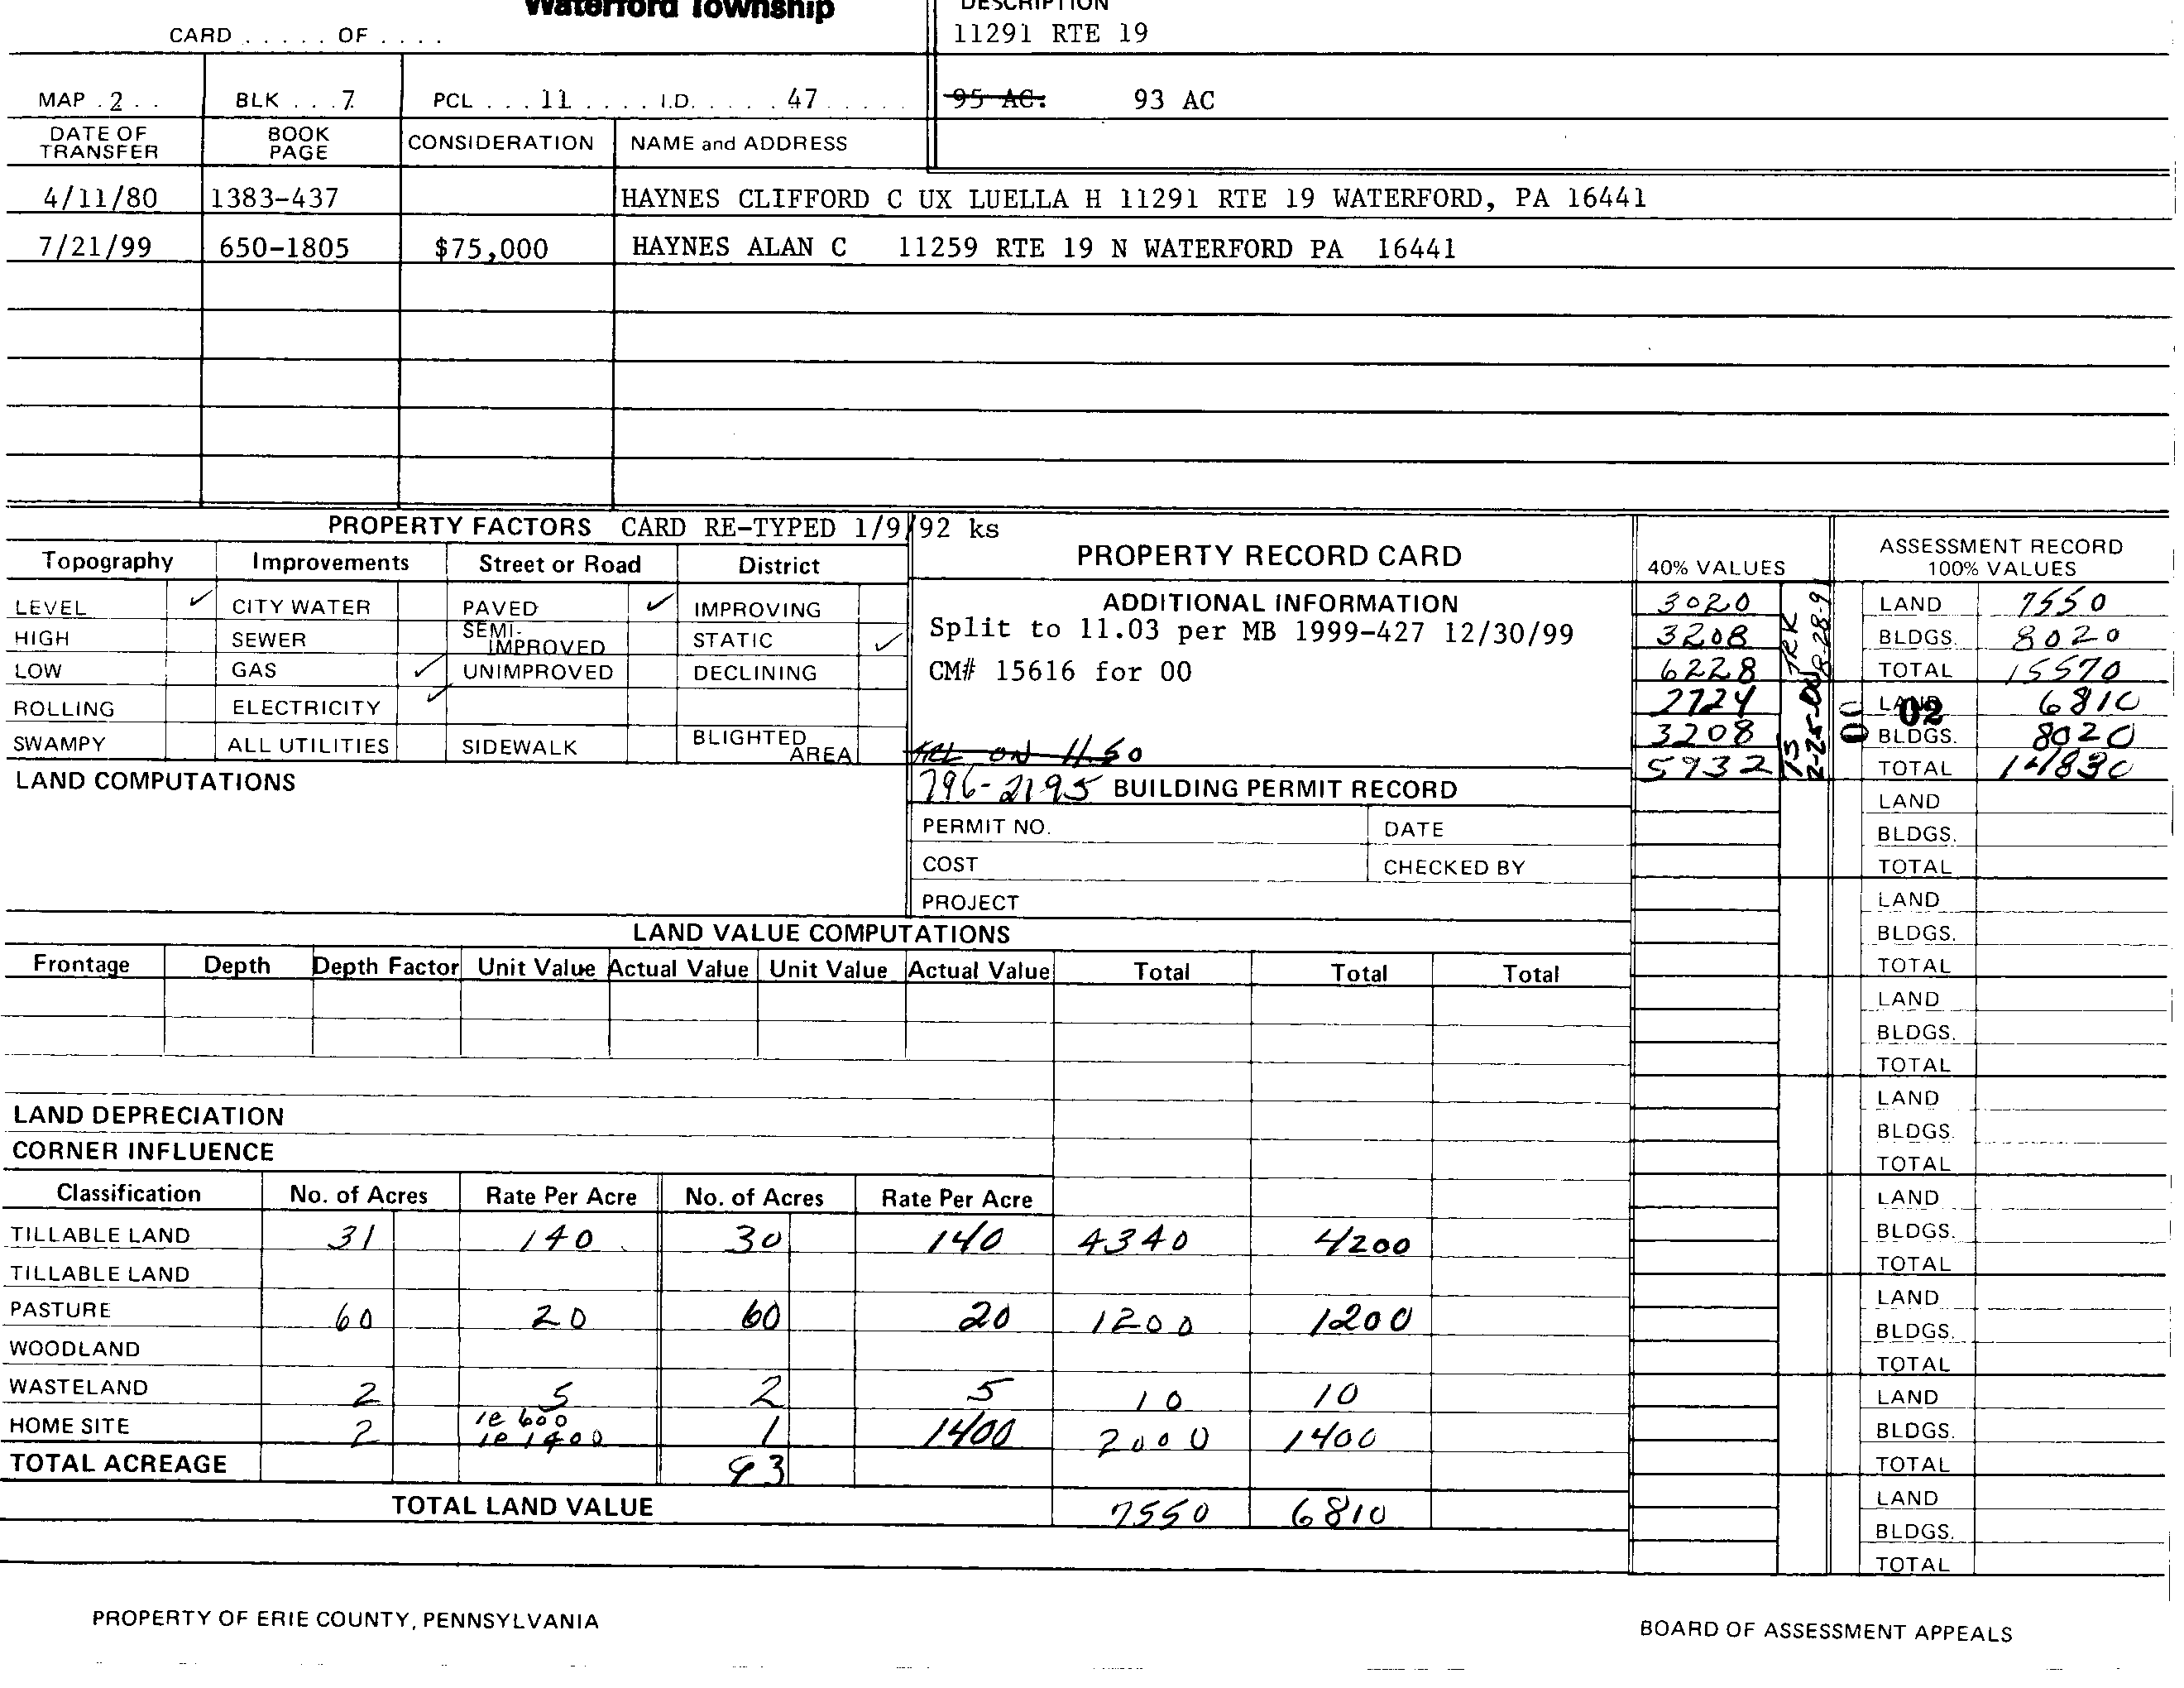 Waterford Township
DESCRIPTION
CARD ..... OF ....
11291 RTE 19
MAP . 2 . . BLK . . . 7 PCL . . . 11 . . . . . I.D. . . . . . 47 . . . . . 95 AC. 93 AC
DATE OF TRANSFER BOOK PAGE CONSIDERATION NAME and ADDRESS
4/11/80 1383-437 HAYNES CLIFFORD C UX LUELLA H 11291 RTE 19 WATERFORD, PA 16441
7/21/99 650-1805 $75,000 HAYNES ALAN C 11259 RTE 19 N WATERFORD PA 16441
PROPERTY FACTORS CARD RE-TYPED 1/9/92 ks
Topography Improvements Street or Road District
LEVEL ✓ CITY WATER PAVED ✓ IMPROVING
HIGH SEWER SEMI-IMPROVED STATIC ✓
LOW GAS ✓ UNIMPROVED DECLINING
ROLLING ELECTRICITY ✓
SWAMPY ALL UTILITIES SIDEWALK BLIGHTED AREA
LAND COMPUTATIONS
PROPERTY RECORD CARD
ADDITIONAL INFORMATION
Split to 11.03 per MB 1999-427 12/30/99
CM# 15616 for 00
ON 11.50
796-2195 BUILDING PERMIT RECORD
PERMIT NO. DATE
COST CHECKED BY
PROJECT
40% VALUES
3020
3208
6228
2724
3208
5932
JRK
8-28-91
TS
2-25-00
ASSESSMENT RECORD
100% VALUES
LAND 7550
BLDGS. 8020
TOTAL 15570
00
02
LAND 6810
BLDGS. 8020
TOTAL 14830
LAND
BLDGS.
TOTAL
LAND
BLDGS.
TOTAL
LAND
BLDGS.
TOTAL
LAND
BLDGS.
TOTAL
LAND
BLDGS.
TOTAL
LAND
BLDGS.
TOTAL
LAND
BLDGS.
TOTAL
LAND
BLDGS.
TOTAL
LAND VALUE COMPUTATIONS
Frontage Depth Depth Factor Unit Value Actual Value Unit Value Actual Value Total Total Total
LAND DEPRECIATION
CORNER INFLUENCE
Classification No. of Acres Rate Per Acre No. of Acres Rate Per Acre
TILLABLE LAND 31 140 30 140 4340 4200
TILLABLE LAND
PASTURE 60 20 60 20 1200 1200
WOODLAND
WASTELAND 2 5 2 5 10 10
HOME SITE 2 1@ 600 1@ 1400 1 1400 2000 1400
TOTAL ACREAGE 93
TOTAL LAND VALUE 7550 6810
PROPERTY OF ERIE COUNTY, PENNSYLVANIA
BOARD OF ASSESSMENT APPEALS